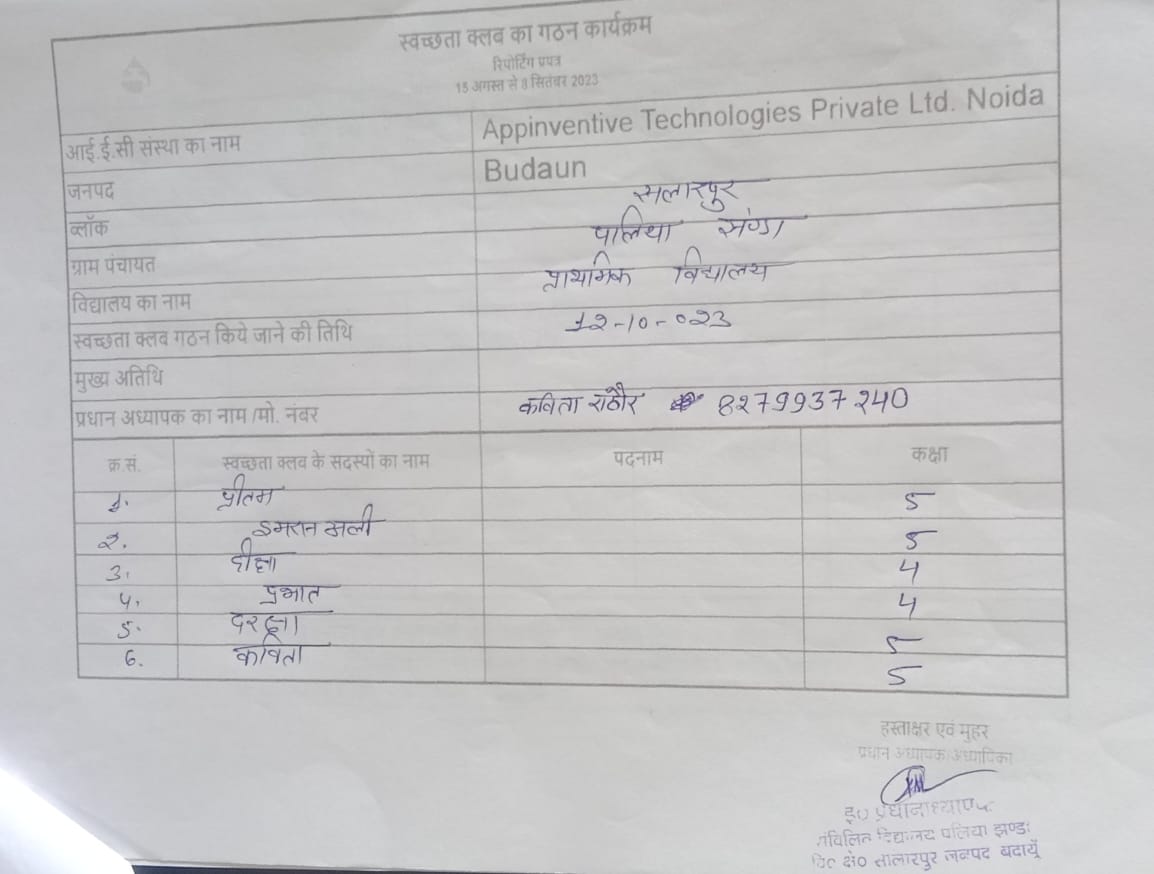 स्वच्छता क्लव का गठन कार्यक्रम
रिपोर्टिंग प्रपत्र
15 अगस्त से 8 सितंबर 2023
आई.ई.सी संस्था का नाम Appinventive Technologies Private Ltd. Noida
जनपद Budaun
ब्लॉक सलारपुर
ग्राम पंचायत पालिया झण्डा
विद्यालय का नाम प्राथमिक विद्यालय
स्वच्छता क्लव गठन किये जाने की तिथि 12-10-023
मुख्य अतिथि
प्रधान अध्यापक का नाम /मो. नंबर कविता राठौर 8279937240
क्र.सं. स्वच्छता क्लव के सदस्यों का नाम पदनाम कक्षा
1. प्रीतम 5
2. इमरान अली 5
3. दीक्षा 4
4. प्रभात 4
5. 5
6. कविता 5
हस्ताक्षर एवं मुहर
प्रधान अध्यापक/अध्यापिका
इ0 प्रधानाध्यापक
संविलित विद्यालय पलिया झण्डा
वि0 क्षे0 सालारपुर जनपद बदायूँ